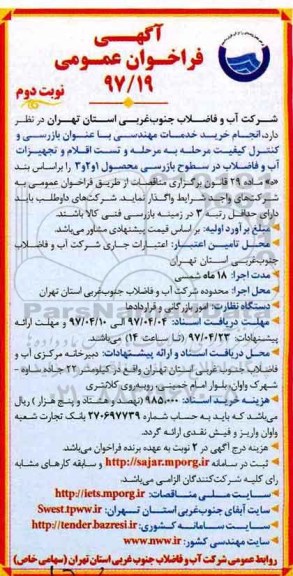 آگهی
فراخوان عمومی
۹۷/۱۹
نوبت دوم
شرکت آب و فاضلاب جنوب‌غربی استان تهران در نظر
دارد، انجام خرید خدمات مهندسی با عنوان بازرسی و
کنترل کیفیت مرحله به مرحله و تست اقلام و تجهیزات
آب و فاضلاب در سطوح بازرسی محصول ۱و۲و۳ را براساس بند
«ه» ماده ۲۹ قانون برگزاری مناقصات از طریق فراخوان عمومی به
شرکت‌های واجد شرایط واگذار نماید. شرکت‌های داوطلب باید
دارای حداقل رتبه ۳ در زمینه بازرسی فنی کالا باشند.
مبلغ برآورد اولیه: بر اساس قیمت پیشنهادی مشاور می‌باشد.
محل تامین اعتبار: اعتبارات جاری شرکت آب و فاضلاب
جنوب‌غربی استان تهران
مدت اجرا: ۱۸ ماه شمسی
محل اجرا: محدوده شرکت آب و فاضلاب جنوب‌غربی استان تهران
دستگاه نظارت: امور بازرگانی و قراردادها
مهلت دریافت اسناد: ۹۷/۰۴/۰۴ الی ۹۷/۰۴/۱۰ و مهلت ارائه
پیشنهادات: ۹۷/۰۴/۲۳ (تا ساعت ۱۴) می‌باشد.
محل دریافت اسناد و ارائه پیشنهادات: دبیرخانه مرکزی آب و
فاضلاب جنوب غربی استان تهران واقع در کیلومتر ۲۲ جاده ساوه -
شهرک واوان، بلوار امام خمینی، روبه‌روی کلانتری
هزینه خرید اسناد: ۹۸۵,۰۰۰ (نهصد و هشتاد و پنج هزار) ریال
می‌باشد که باید به حساب شماره ۲۷۰۶۹۷۷۳۹ بانک تجارت شعبه
واوان واریز و فیش نقدی ارائه گردد.
هزینه درج آگهی در ۲ نوبت به عهده برنده فراخوان می‌باشد.
ثبت در سامانه http://sajar.mporg.ir و سابقه کارهای مشابه
رای کلیه شرکت‌کنندگان الزامی می‌باشد.
سایت ملی مناقصات: http://iets.mporg.ir
سایت آبفای جنوب‌غربی استان تهران: Swest.tpww.ir
سایت سامانه کشوری: http://tender.bazresi.ir
سایت مهندسی کشور: www.nww.ir
روابط عمومی شرکت آب و فاضلاب جنوب غربی استان تهران (سهامی خاص)